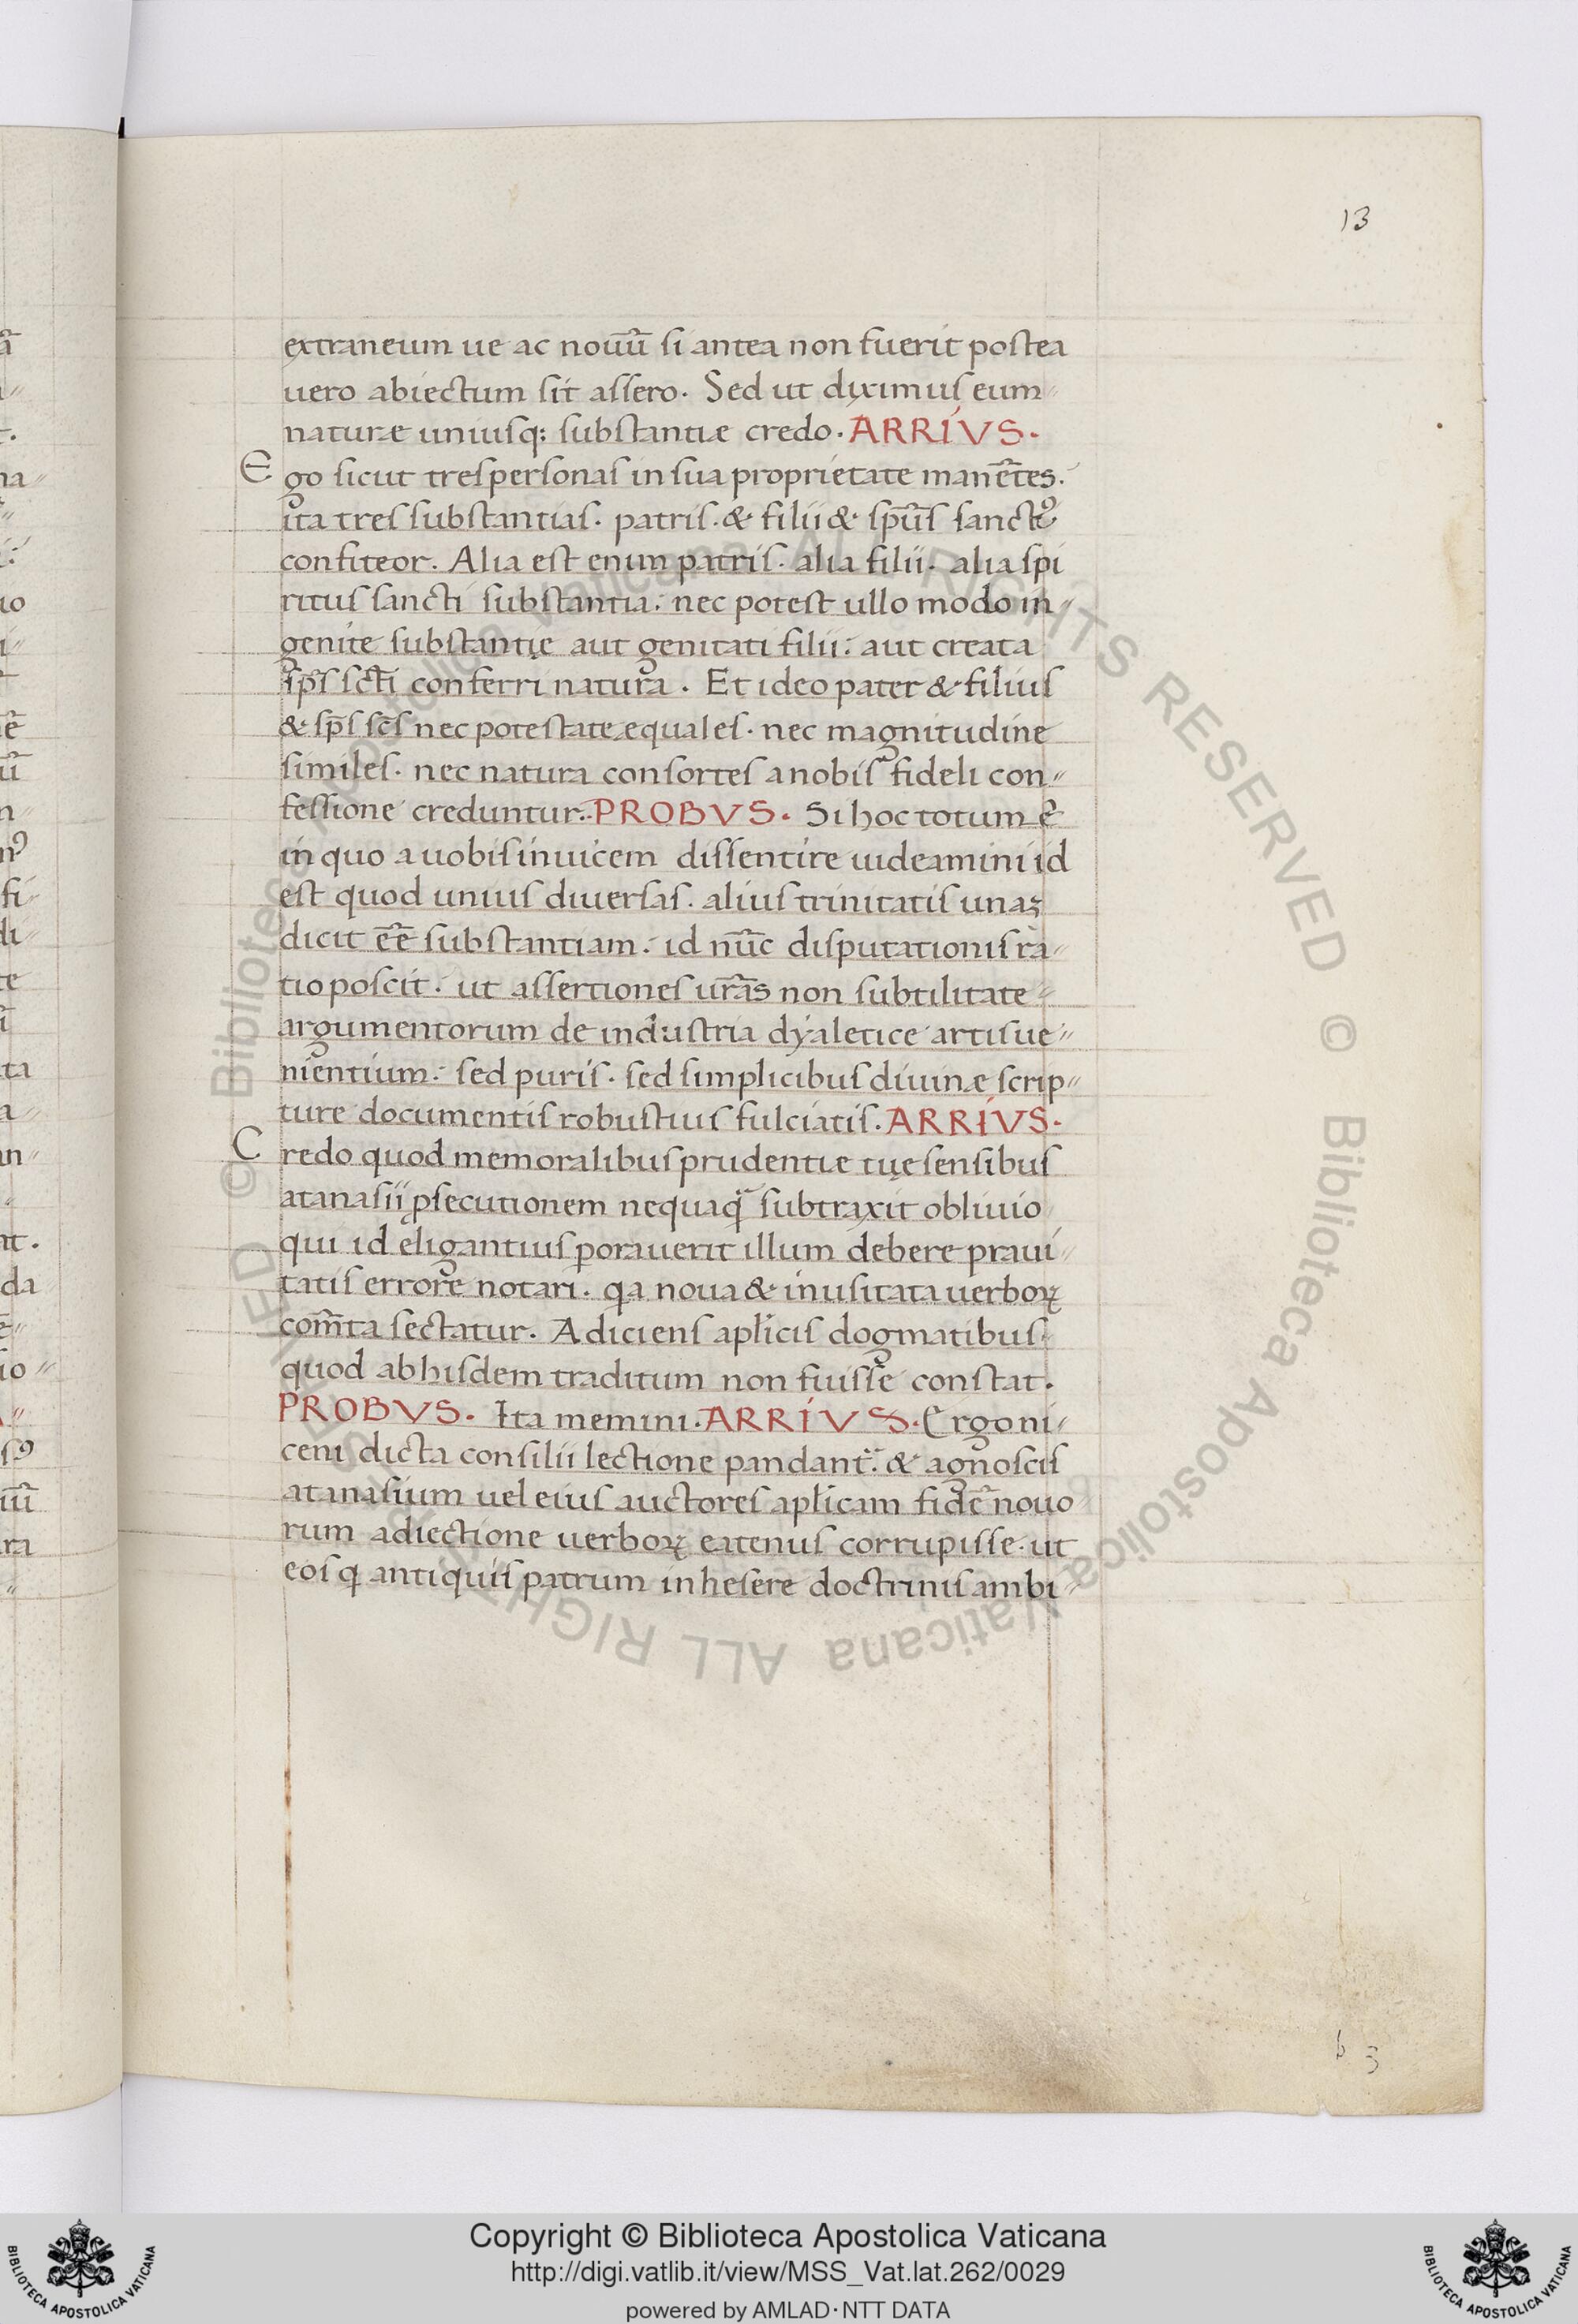 13
extraneum ue ac nouū si antea non fuerit postea
uero abiectum sit assero. Sed ut diximus eum
naturæ uniusq; substantiæ credo. ARRIVS.
Ego sicut tres personas in sua proprietate manētes.
ita tres substantias. patris. & filii & spūs sancti
confiteor. Alia est enim patris. alia filii. alia spi
ritus sancti substantia. nec potest ullo modo in
genite substantię aut genitati filii. aut creata
sp̄s sc̄ti conferri natura. Et ideo pater & filius
& sp̄s sc̄s nec potestate equales. nec magnitudine
similes. nec natura consortes a nobis fideli con
fessione creduntur. PROBVS. Si hoc totum ē
in quo a uobis inuicem dissentire uideamini id
est quod unius diuersas. alius trinitatis unaꝫ
dicit ēē substantiam. id nūc disputationis ra
tio poscit. ut assertiones ur̄as non subtilitate
argumentorum de industria dyaletice artis ue
nientium. sed puris. sed simplicibus diuinæ scrip
ture documentis robustius fulciatis. ARRIVS.
Credo quod memoralibus prudentiæ tuę sensibus
atanasii ꝑsecutionem nequaq̄ subtraxit obliuio
qui id eligantius ꝑorauerit illum debere praui
tatis errore notari. qa noua & inusitata uerboꝝ
com̄ta sectatur. Adiciens aplicis dogmatibus
quod ab hisdem traditum non fuisse constat.
PROBVS. Ita memini. ARRIVS. Ergo ni
ceni dicta consilii lectione pandant. & agnoscis
atanasium uel eius auctores aplicam fidē nouo
rum adiectione uerboꝝ eatenus corrupisse. ut
eos q antiquis patrum inhesere doctrinis ambi
b 3
Copyright © Biblioteca Apostolica Vaticana
http://digi.vatlib.it/view/MSS_Vat.lat.262/0029
powered by AMLAD·NTT DATA